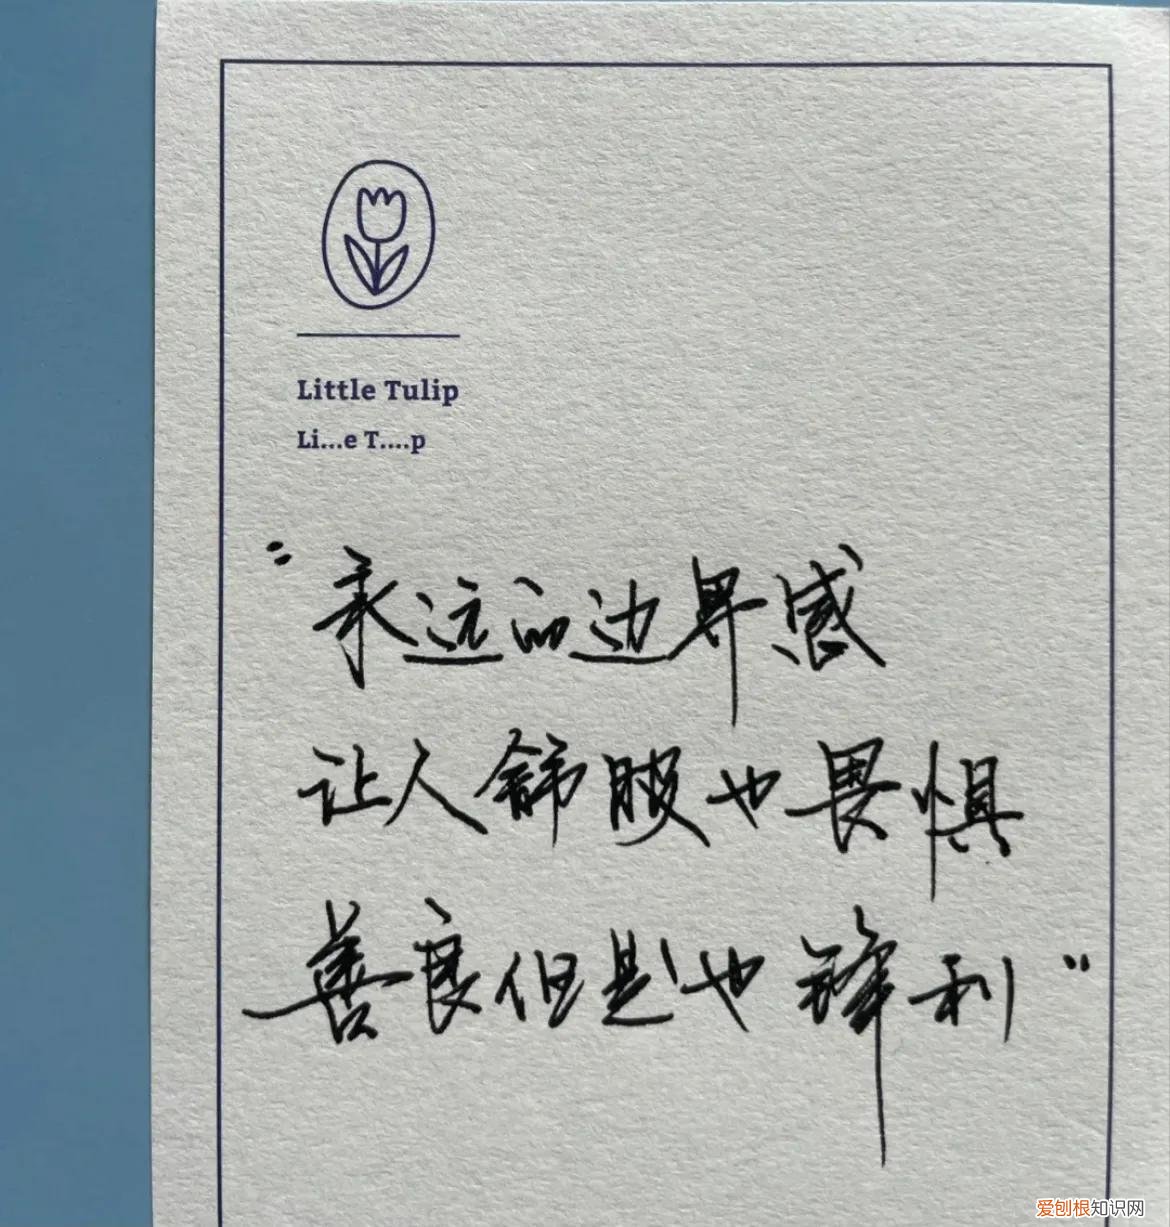 Little Tulip
Li...e T....p
“永远的边界感
让人舒服也畏惧
善良但是也锋利”
爱刨根知识网